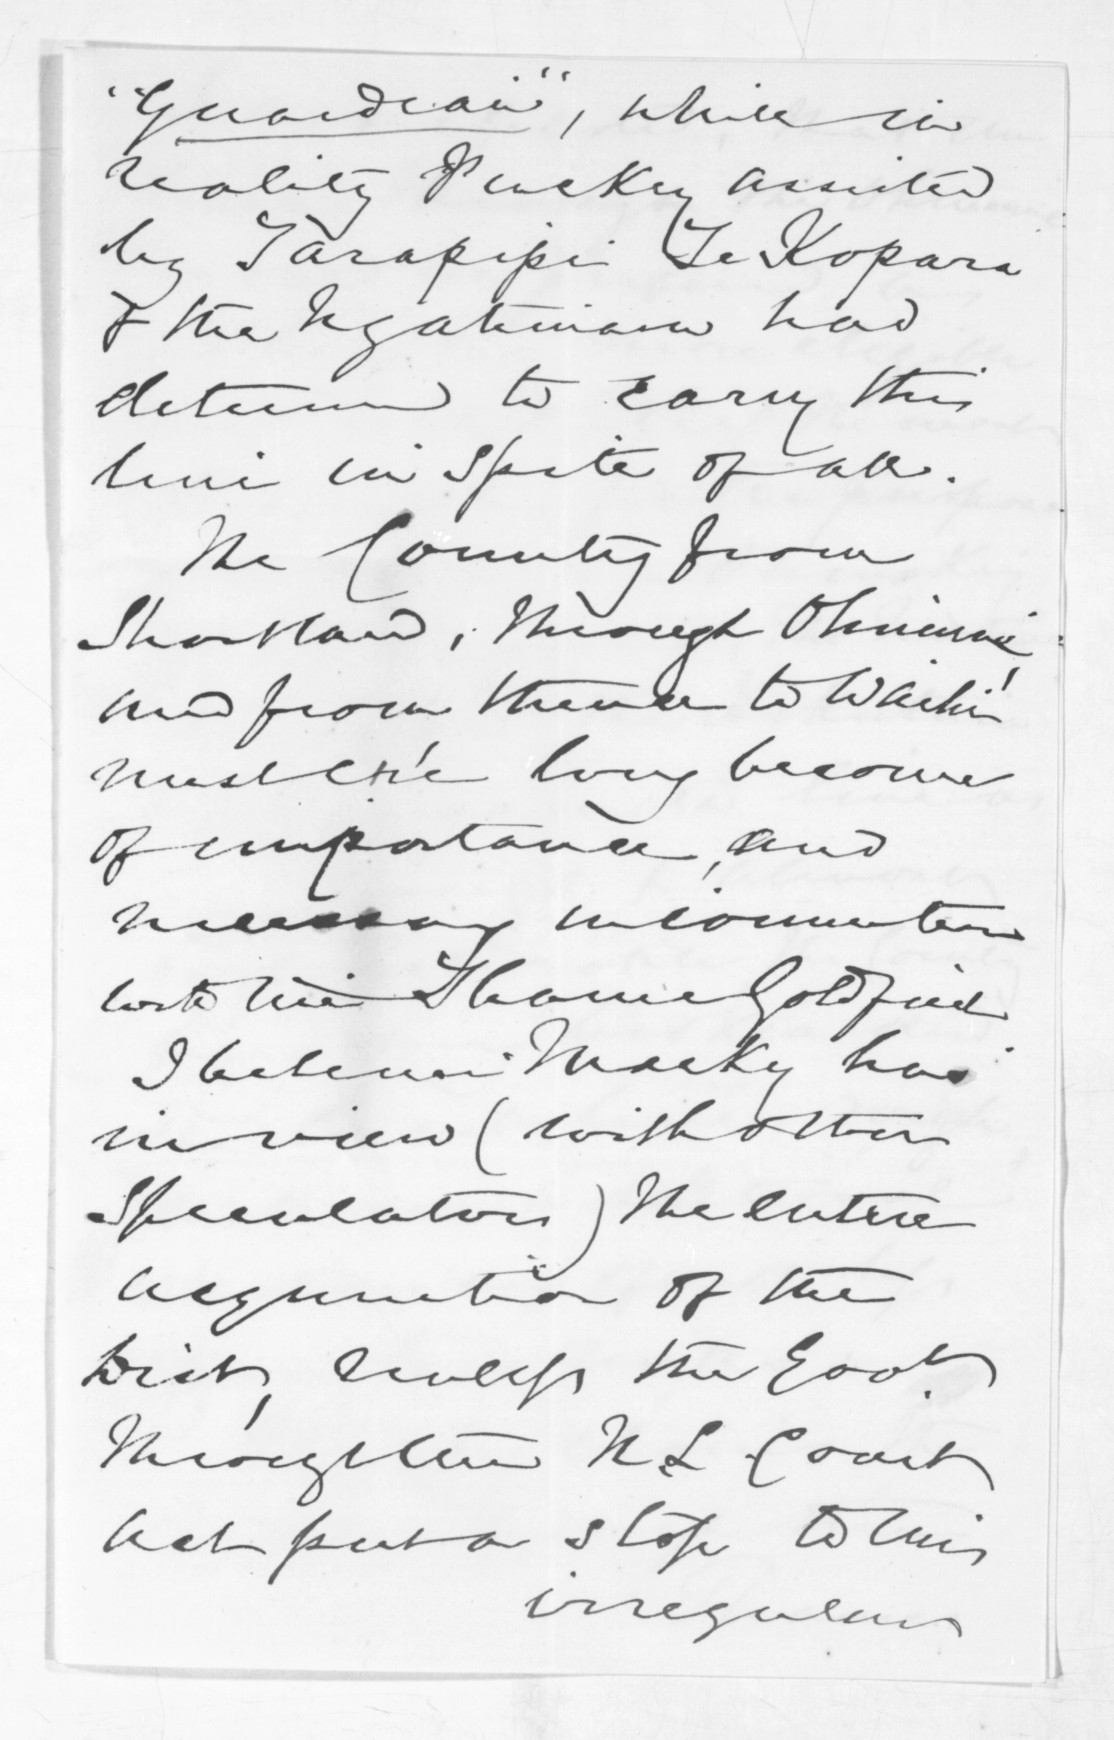 "Guardian", while in
reality Puckey assisted
by Tarapipi Te Kopara
& the Ngatimaru had
determined to carry this
line in spite of all.
The Country from
Shortland, through Ohinemuri
and from thence to Waihi
must ere long become
of importance, and
necessary in connection
with the Thames Goldfield
I believe Macky has
in view (with other
Speculators) the entire
acquisition of the
Dist, unless the Govt.
through the N. L. Court
Act put a stop to this
irregular